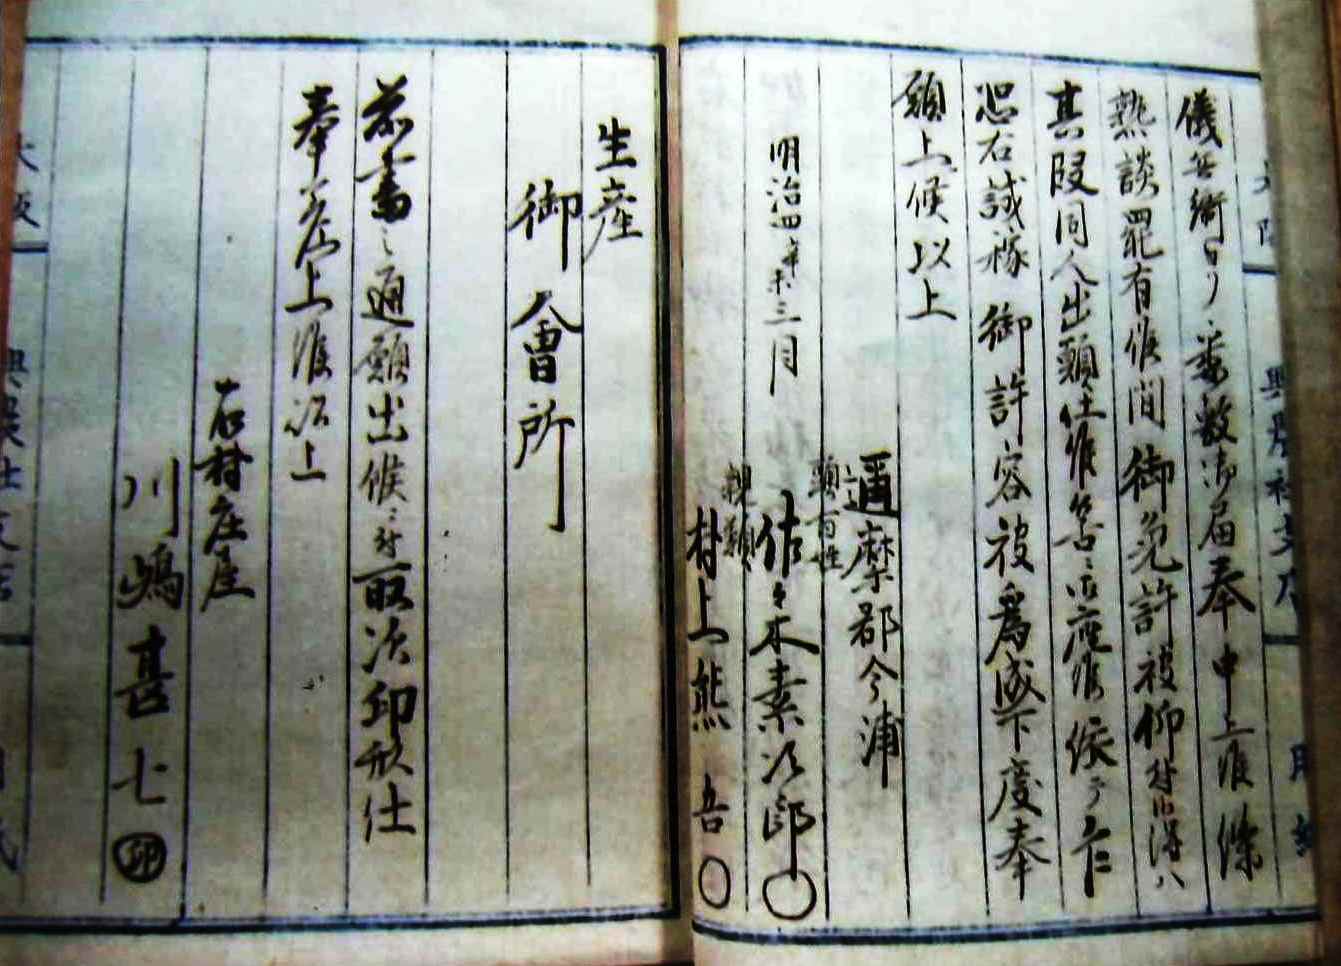 儀兵衛ゟ委敷御届奉申上候條
熟談罷有候間御免許被仰付候得ハ
其段同人出頭仕候筈ニ御座候依テ乍
恐右誠稼御許容被為成下度奉
願上候以上
邇摩郡今浦
明治四辛未三月
頭百姓
佐々木素次郎○
親類
村上熊吾○
生産
御會所
前書之通願出候ニ付取次印形仕
奉差上候以上
右村庄屋
川嶋甚七㊞